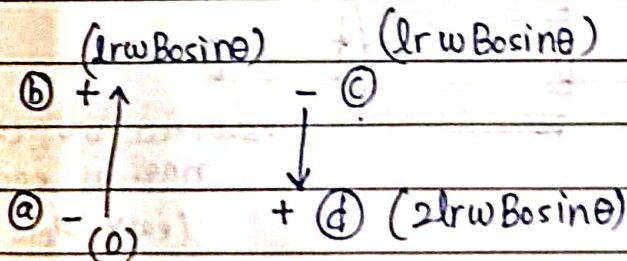 (lrωBosinθ) (lrωBosinθ)
ⓑ + - ⓒ
ⓐ - + ⓓ (2lrωBosinθ)
(0)